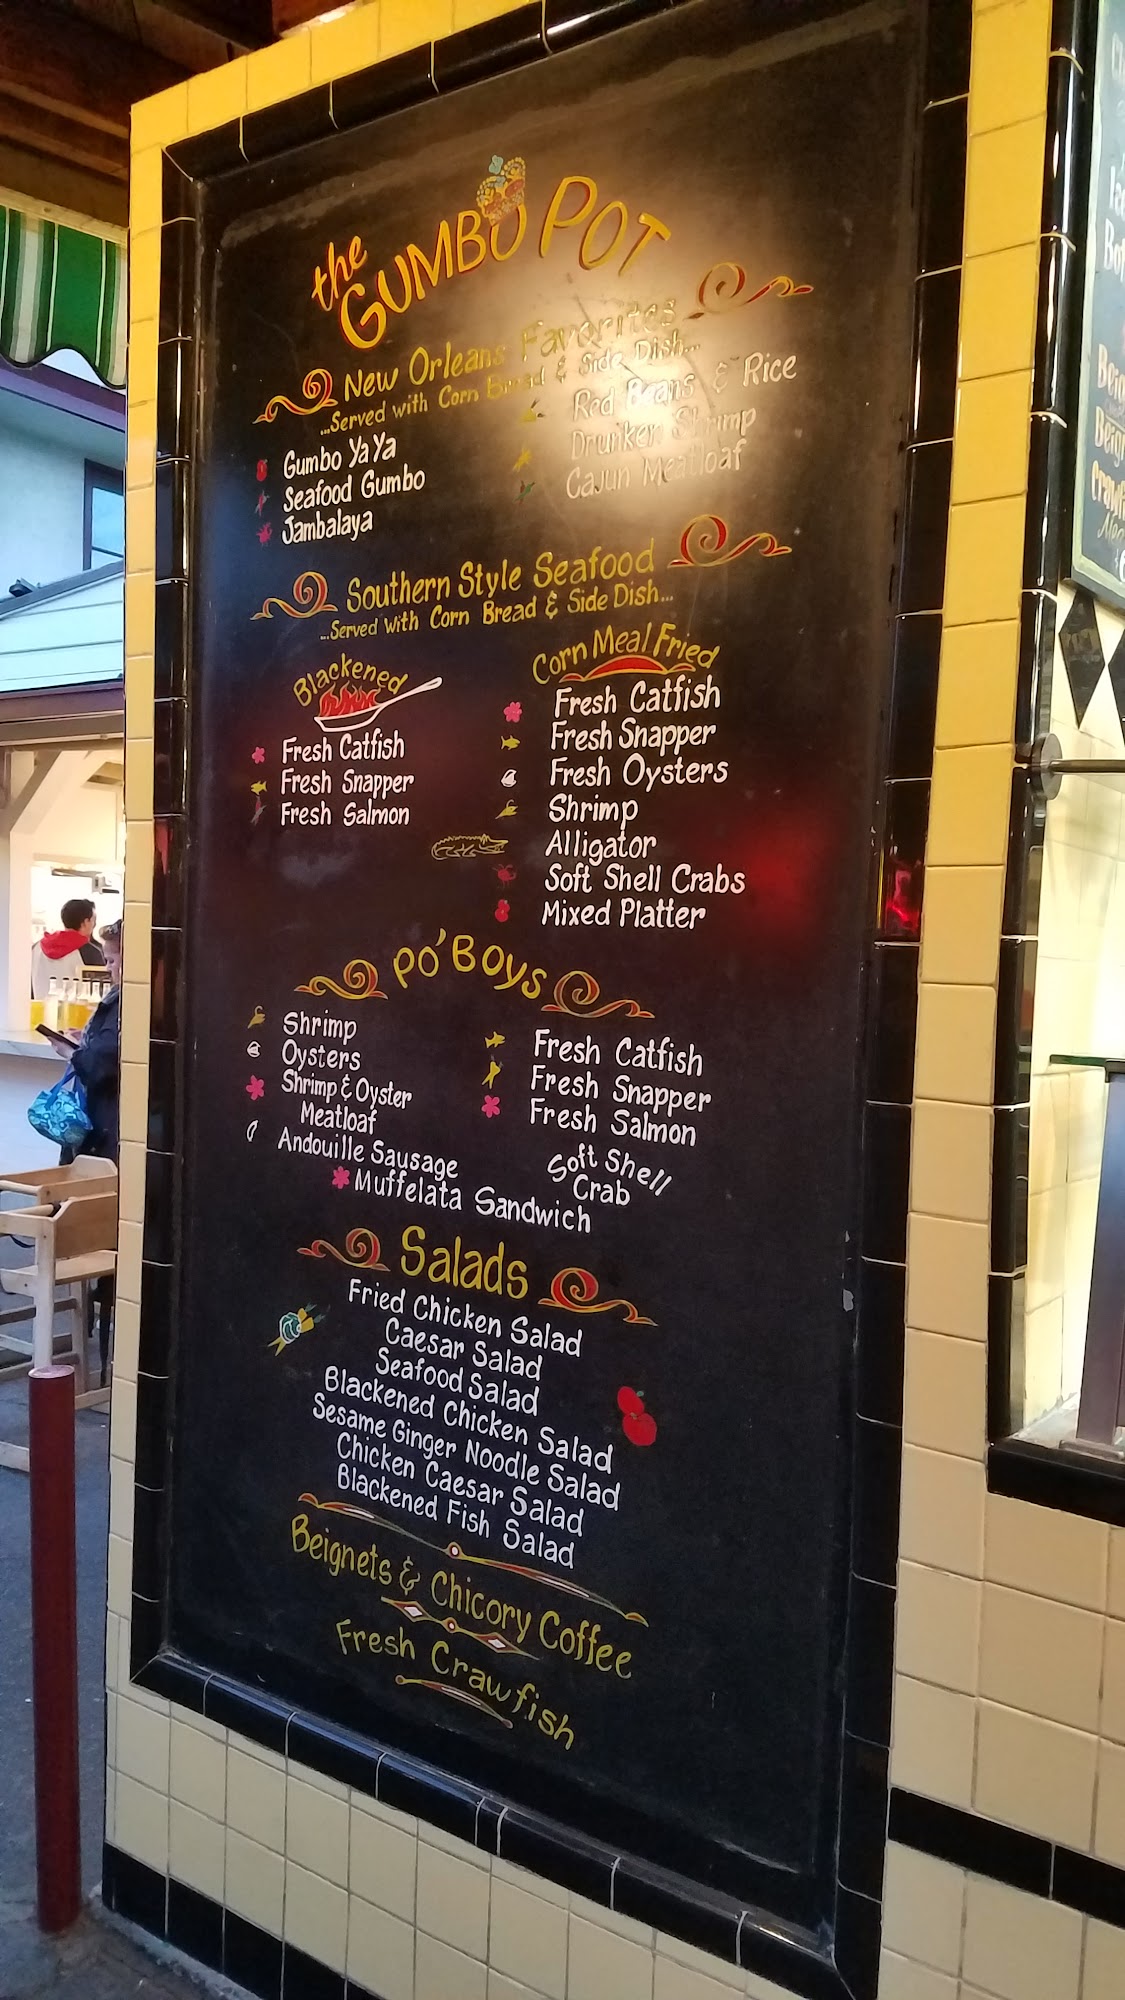 the
GUMBO POT
New Orleans Favorites
...Served with Corn Bread & Side Dish...
Gumbo YaYa
Seafood Gumbo
Jambalaya
Red Beans & Rice
Drunken Shrimp
Cajun Meatloaf
Southern Style Seafood
...Served With Corn Bread & Side Dish...
Blackened
Fresh Catfish
Fresh Snapper
Fresh Salmon
Corn Meal Fried
Fresh Catfish
Fresh Snapper
Fresh Oysters
Shrimp
Alligator
Soft Shell Crabs
Mixed Platter
Po'Boys
Shrimp
Oysters
Shrimp & Oyster
Meatloaf
Andouille Sausage
Fresh Catfish
Fresh Snapper
Fresh Salmon
Soft Shell
Crab
Muffelata Sandwich
Salads
Fried Chicken Salad
Caesar Salad
Seafood Salad
Blackened Chicken Salad
Sesame Ginger Noodle Salad
Chicken Caesar Salad
Blackened Fish Salad
Beignets & Chicory Coffee
Fresh Crawfish